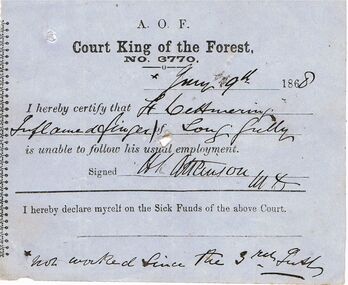 A. O. F.
Court King of the Forest,
NO. 3770.
9th 1868
I hereby certify that
Inflamed finger Long Gully
is unable to follow his usual employment.
Signed Atkinson
I hereby declare myself on the Sick Funds of the above Court.
not worked since the 3rd